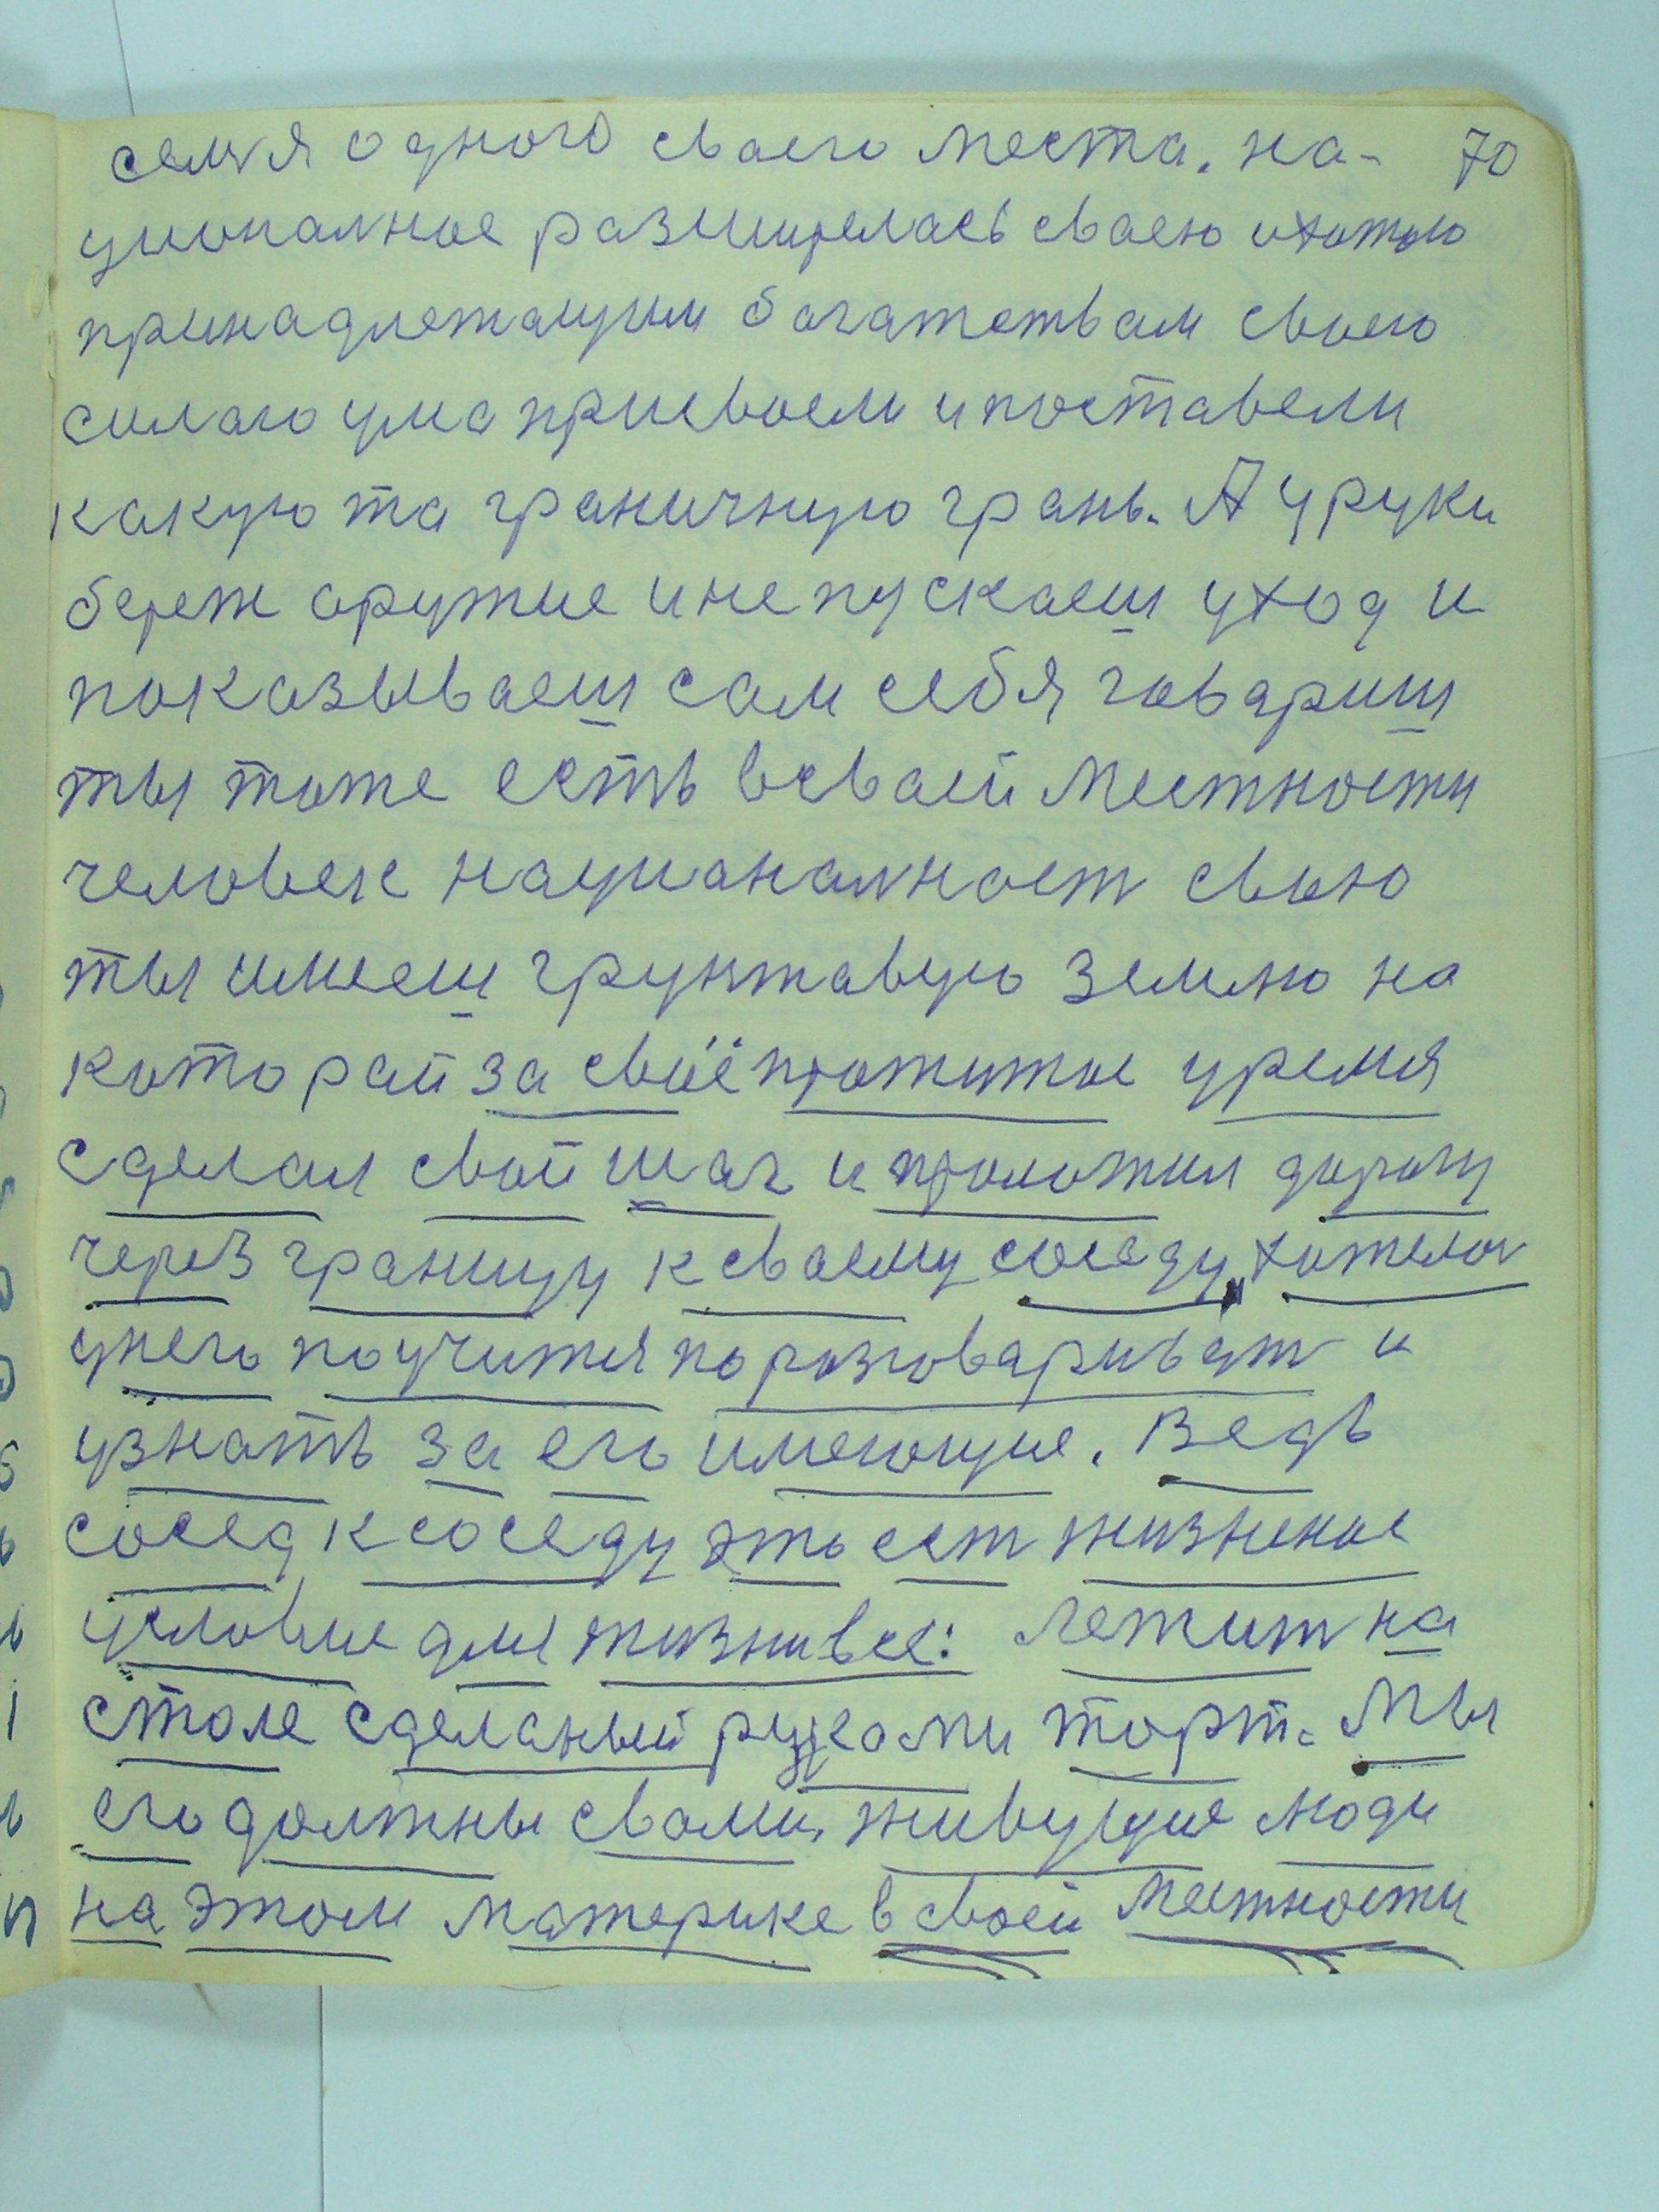 семя одного сваего места. на- 70
циональное разширелась сваею охотою
принадлежащим богатствам своею
силаю ума присвоем и поставели
какую та граничную грань. А у руки
береж оружие и не пускаеш уход и
показываеш сам себя говариш
ты тоже есть всваей местности
человек национальност свою
ты имееш грунтавую землю на
которай за своё прожитое уремя
сделал свой шаг и проложил дорогу
через границу к сваему соседу, хотелос
унего поучится поразговариват и
узнать за его имеющие. Ведь
сосед к соседу это ест жизненое
условие для жизни все: Лежит на
столе сделаный руками торт. Мы
его должны свами, живущие люди
на этом материке в своей местности